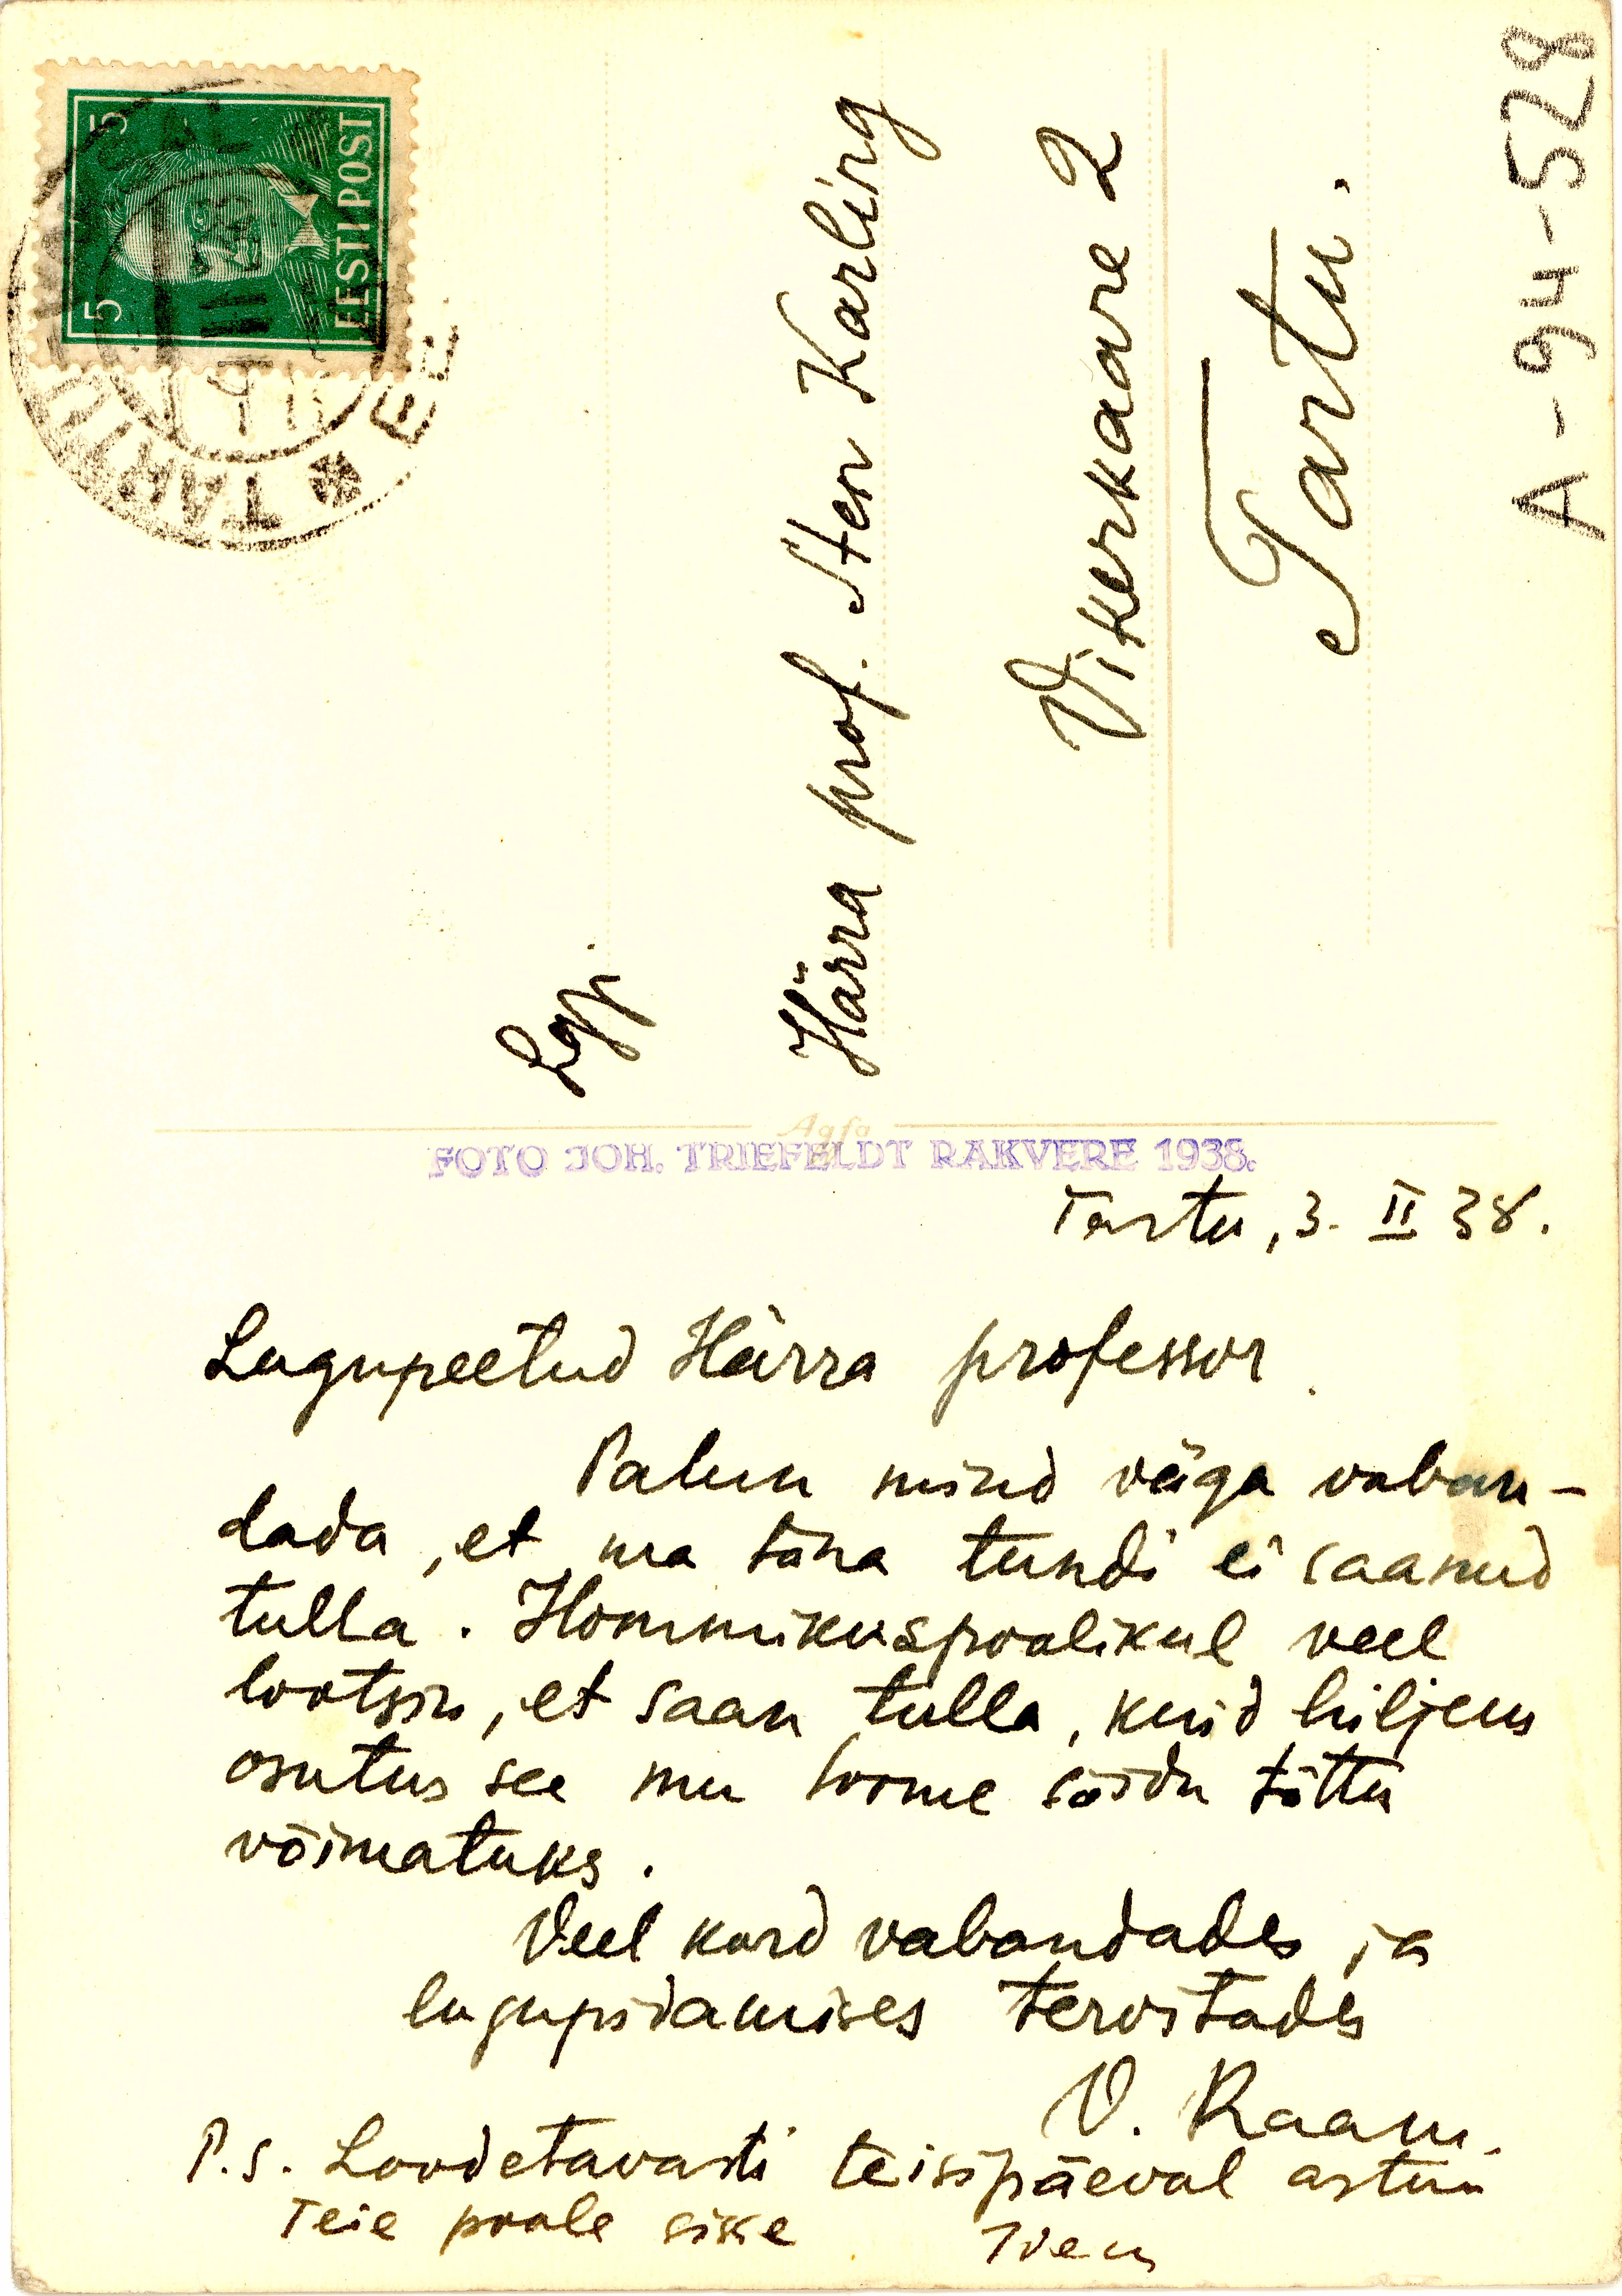 5 5
EESTI POST
TARTU
EE
Lgp.
Härra prof. Sten Karling
Vikerkaare 2
Tartu.
A-94-528
Agfa
FOTO JOH. TRIEFELDT RAKVERE 1938.
Tartu, 3. II 38.
Lugupeetud Härra professor.
Palun mind väga vaban-
dada, et ma täna tundi ei saanud
tulla. Hommikuspoolikul veel
lootsin, et saan tulla, kuid hiljem
osutus see mu soome sõidu tõttu
võimatuks.
Veel kord vabandades ja
lugupidamises tervitades
V. Raam.
P.S. Loodetavasti teisipäeval astun
Teie poole sisse Idem